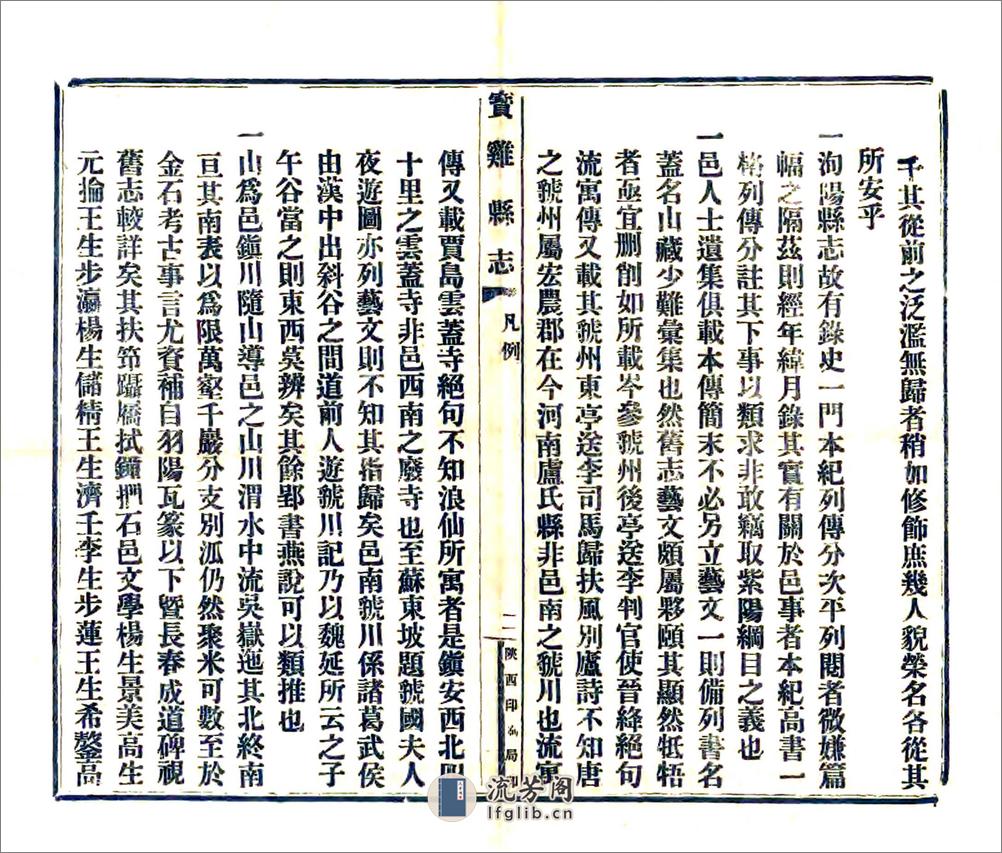 千其從前之泛濫無歸者稍加修飾庶幾人貌榮名各從其
所安乎
一洵陽縣志故有錄史一門本紀列傳分次平列閱者微嫌篇
幅之隔茲則經年緯月錄其實有關於邑事者本紀高書一
格列傳分註其下事以類求非敢竊取紫陽綱目之義也
一邑人士遺集俱載本傳簡末不必另立藝文一則備列書名
蓋名山藏少難彙集也然舊志藝文頗屬夥頤其顯然牴牾
者亟宜删削如所載岑參虢州後亭送李判官使晉絳絕句
流寓傳又載其虢州東亭送李司馬歸扶風別廬詩不知唐
之虢州屬宏農郡在今河南盧氏縣非邑南之虢川也流寓
寶雞縣志
凡例
二
陝西印 局印
傳又載賈島雲蓋寺絕句不知浪仙所寓者是鎮安西北四
十里之雲蓋寺非邑西南之廢寺也至蘇東坡題虢國夫人
夜遊圖亦列藝文則不知其指歸矣邑南虢川係諸葛武侯
由漢中出斜谷之間道前人遊虢川記乃以魏延所云之子
午谷當之則東西莫辨矣其餘郢書燕說可以類推也
一山爲邑鎮川隨山導邑之山川渭水中流吳嶽迤其北終南
亘其南表以爲限萬壑千巖分支別派仍然聚米可數至於
金石考古事言尤資補自羽陽瓦篆以下曁長春成道碑視
舊志較詳矣其扶節躡屩拭蘚捫石邑文學楊生景美高生
元掄王生步瀛楊生儲精王生濟壬李生步蓮王生希鏊高
流芳阁
lfglib.cn